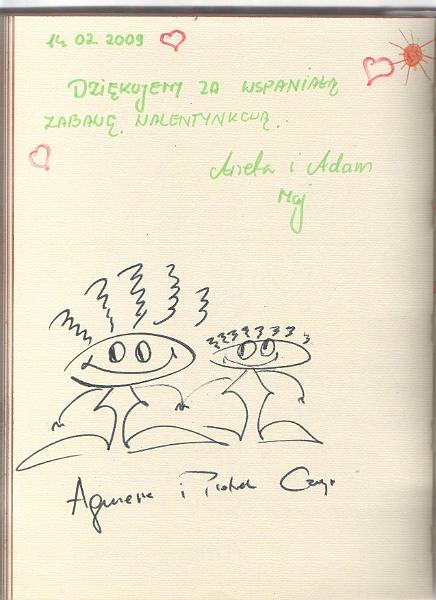 14.02.2009
DZIĘKUJEMY ZA WSPANIAŁĄ
ZABAWĘ WALENTYNKOWĄ.
Aneta i Adam
Maj
i Piotrek